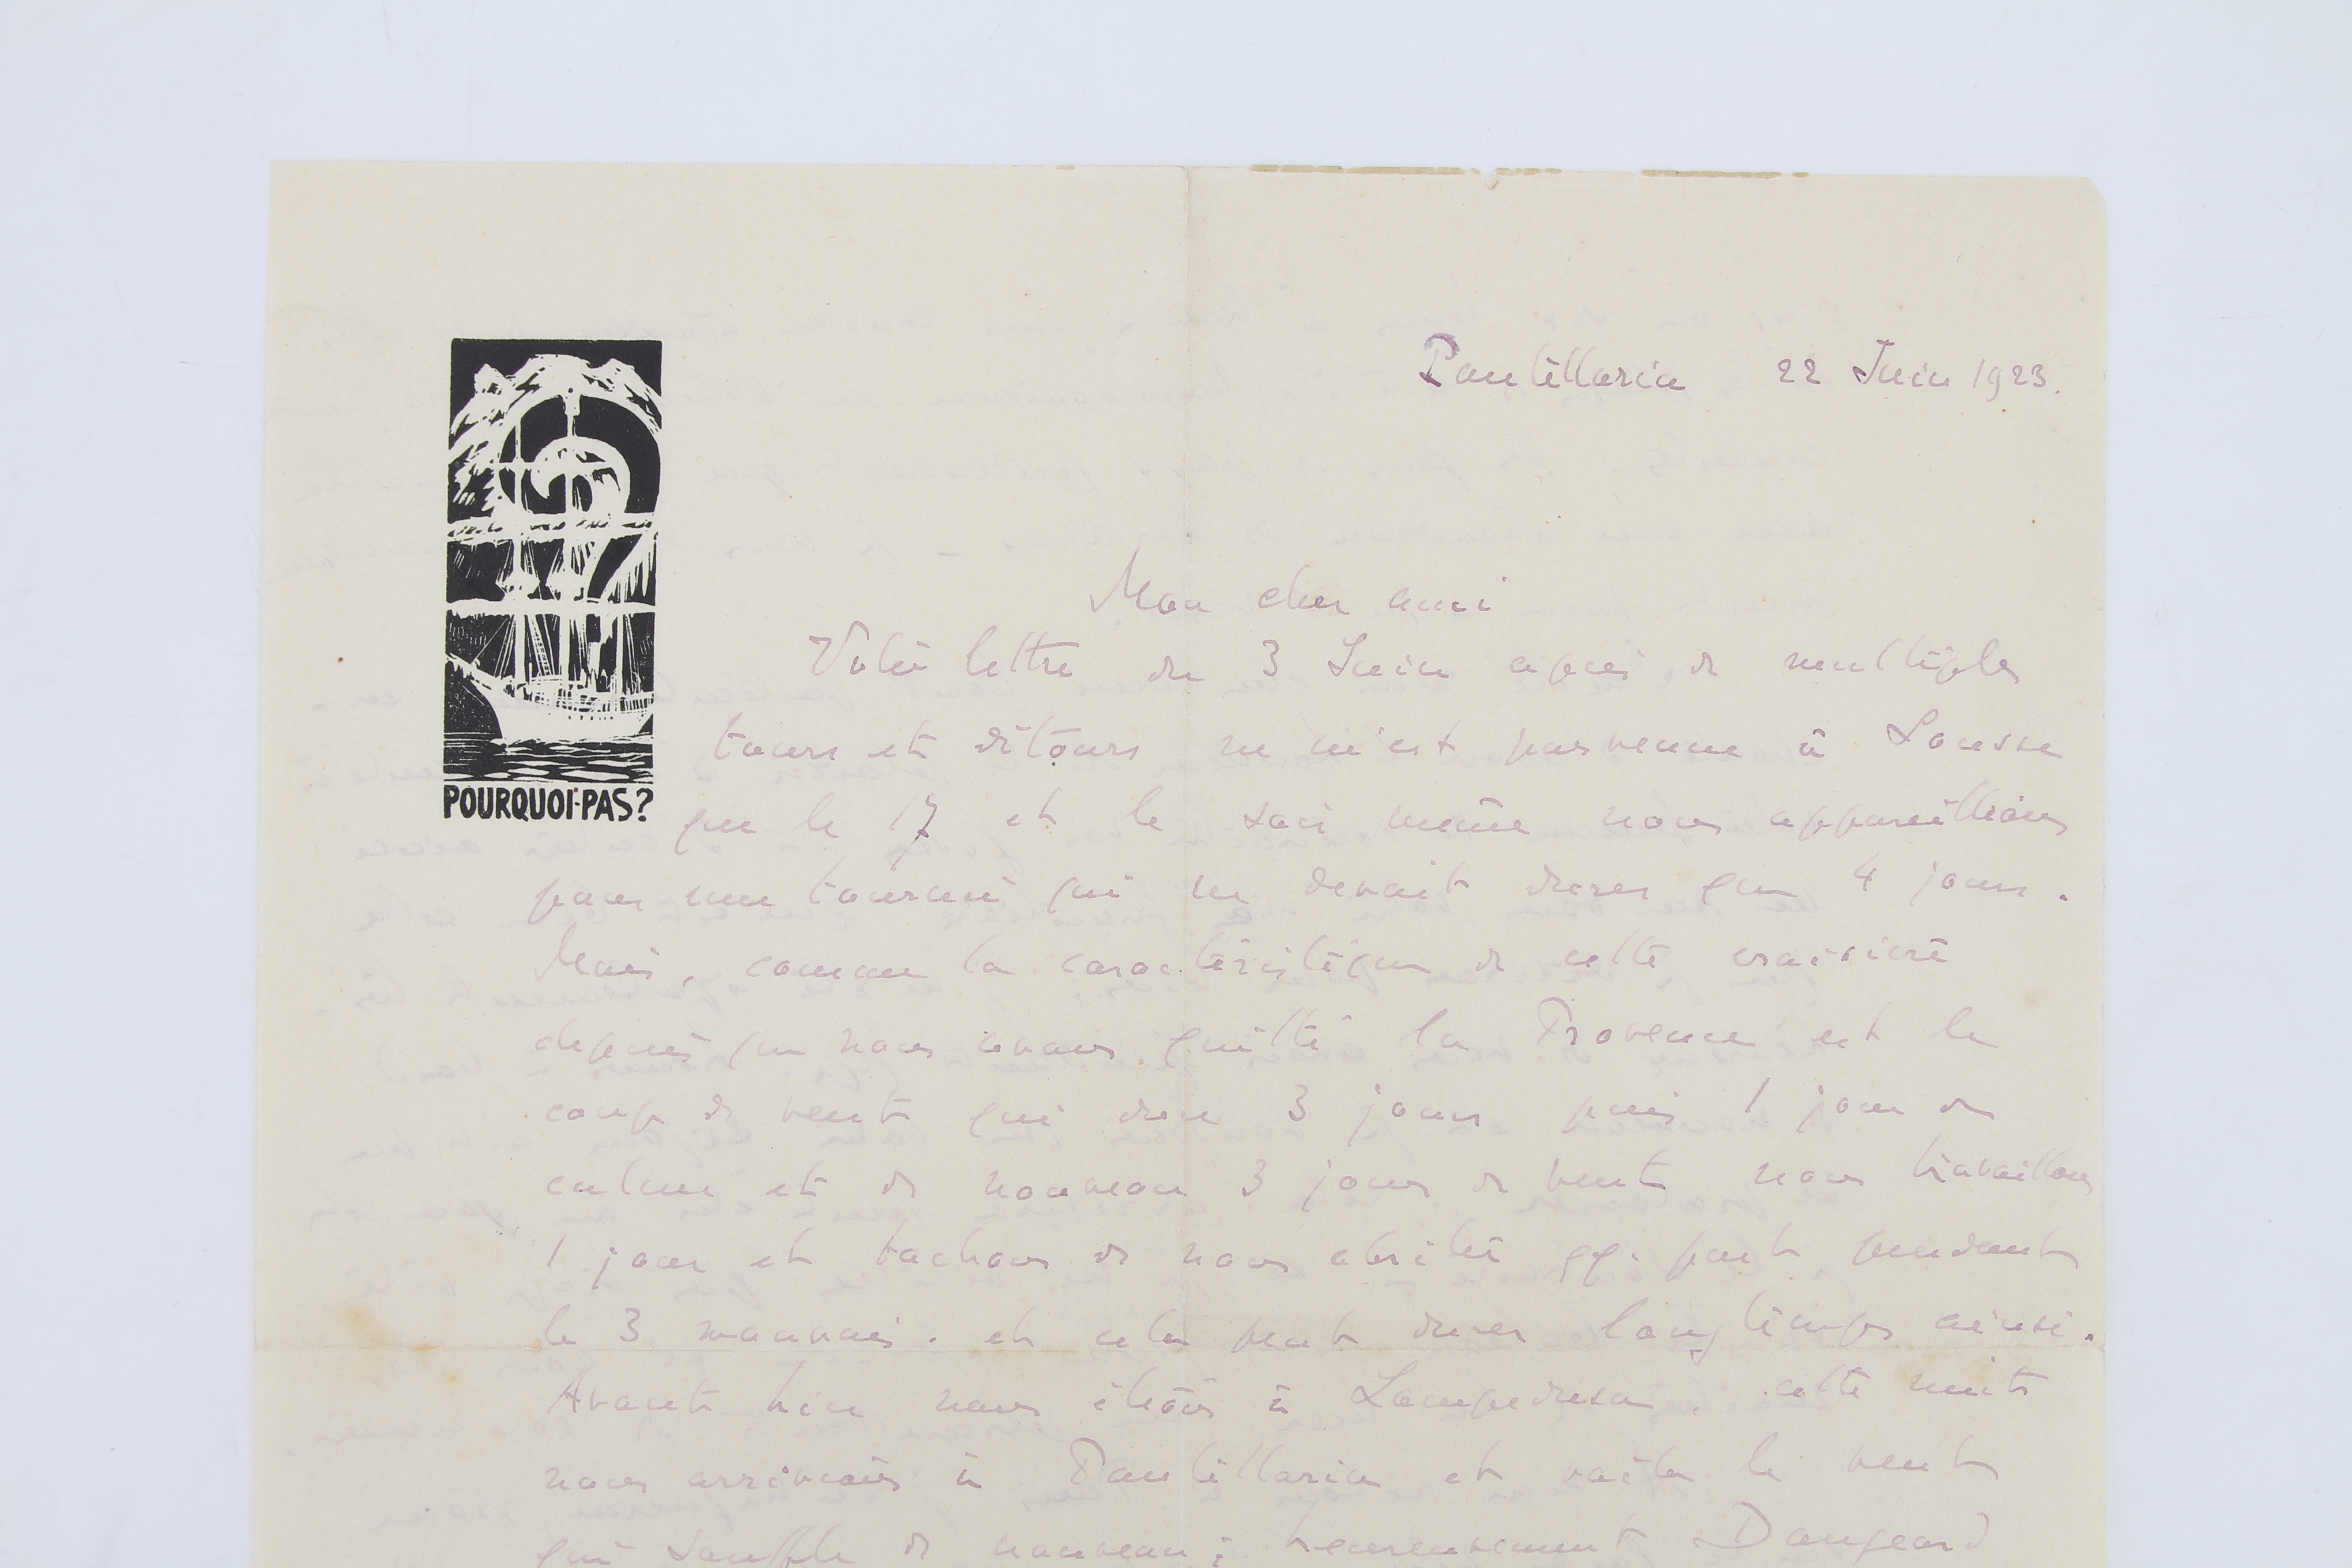 Pantellaria 22 Juin 1923.
Mon cher ami
Votre lettre du 3 Juin après de multiples
tours et détours ne m'est parvenue à Sousse
POURQUOI-PAS?
que le 17 et le soir même nous appareillions
pour une tournée qui ne devait durer que 4 jours.
Mais, comme la caractéristique de cette croisière
depuis que nous avons quitté la Provence est le
coup de vent qui dure 3 jours puis 1 jour de
calme et de nouveau 3 jours de vent nous travaillons
1 jour et tachons de nous abriter qq. part pendant
les 3 mauvais. et cela peut durer longtemps ainsi.
Avant hier nous étions à Lampedusa. cette nuit
nous arrivions à Pantellaria et voila le vent
qui souffle de nouveau; heureusement Dangeard